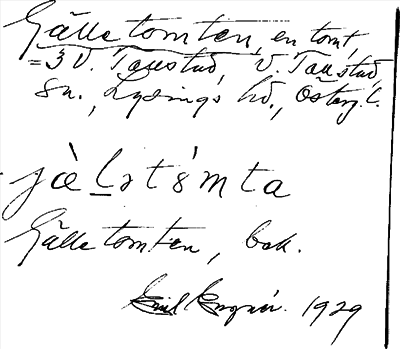 Gälletomten, en tomt,
= 3 V. Tollstad, V. Tollstad
sn., Lysings hd., Österg. l.
jæ̀l̠əts̀mta
Gälletomten, bok.
Emil 1929